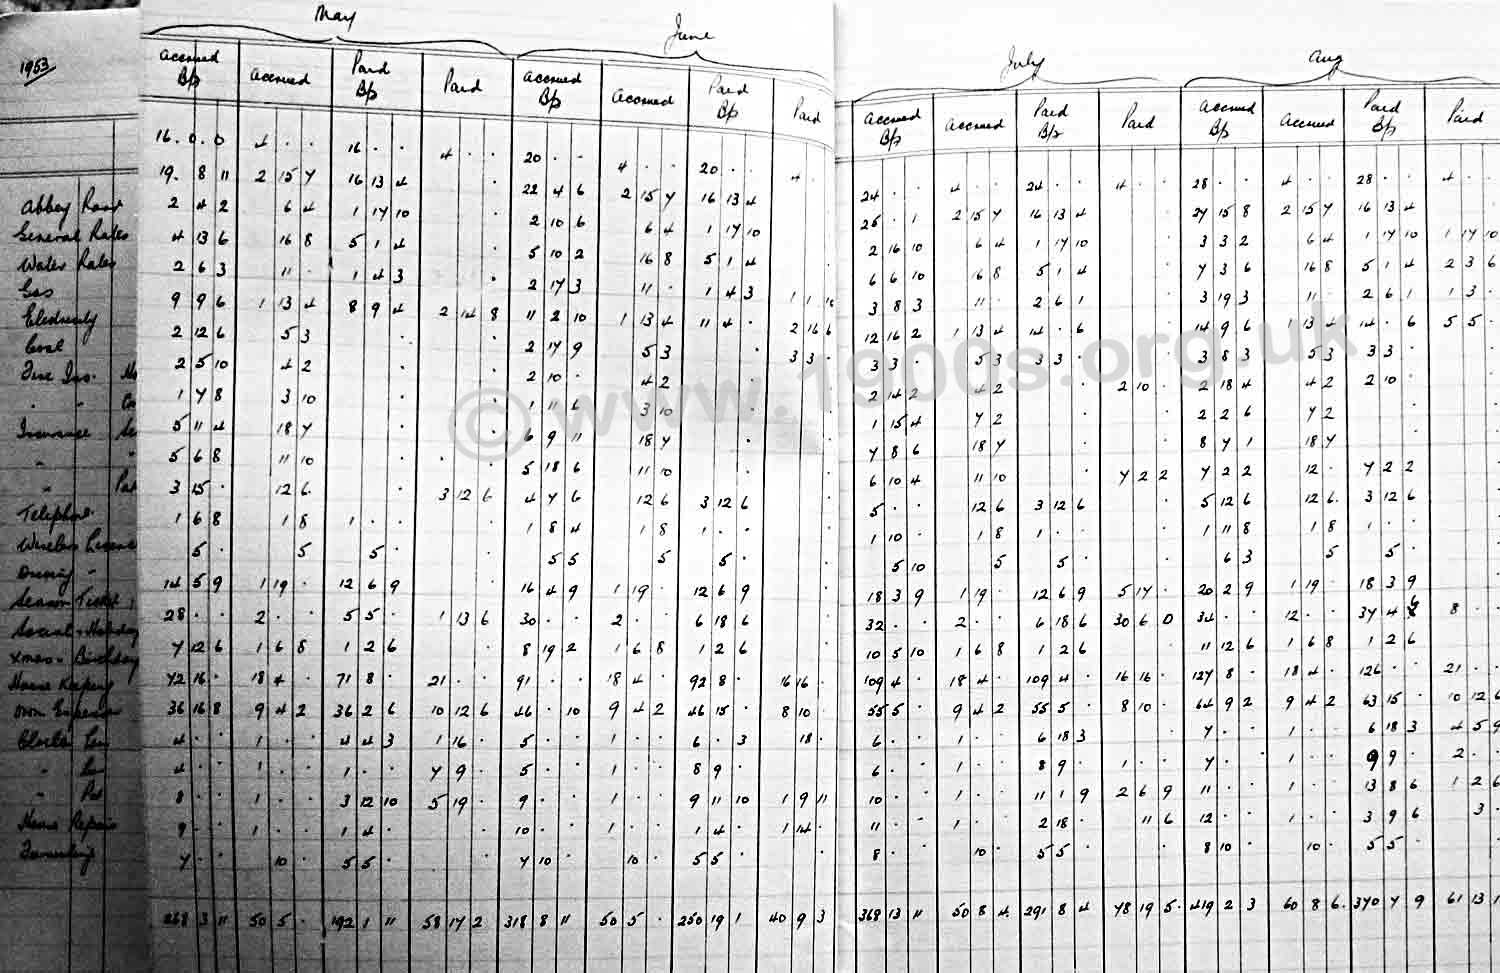 1953
May June July Aug
Accrued Bp Accrued Paid Bp Paid Accrued Bp Accrued Paid Bp Paid Accrued Bp Accrued Paid Bp Paid Accrued Bp Accrued Paid Bp Paid
Abbey Road 16.0.0 4 . . 16 . . 4 . . 20 . . 4 . . 20 . . 4 . 24 . . 4 . . 24 . . 4 . . 28 . . 4 . . 28 . . 4 . .
General Rates 19. 8 11 2 15 7 16 13 4 22 4 6 2 15 7 16 13 4 25 . 1 2 15 7 16 13 4 27 15 8 2 15 7 16 13 4
Water Rates 2 4 2 6 4 1 17 10 2 10 6 6 4 1 17 10 2 16 10 6 4 1 17 10 3 3 2 6 4 1 17 10 1 17 10
Gas 4 13 6 16 8 5 1 4 5 10 2 16 8 5 1 4 6 6 10 16 8 5 1 4 7 3 6 16 8 5 1 4 2 3 6
Electricity 2 6 3 11 . 1 4 3 2 17 3 11 . 1 4 3 1 1 10 3 8 3 11 . 2 6 1 3 19 3 11 . 2 6 1 1 3 .
Coal 9 9 6 1 13 4 8 9 4 2 14 8 11 2 10 1 13 4 11 4 . 2 16 6 12 16 2 1 13 4 14 . 6 14 9 6 1 13 4 14 . 6 5 5 .
Fire Ins. 2 12 6 5 3 2 17 9 5 3 3 3 . 3 3 . 5 3 3 3 . 3 8 3 5 3 3 3 .
" " 2 5 10 4 2 2 10 . 4 2 2 14 2 4 2 2 10 . 2 18 4 4 2 2 10 .
Insurance 1 7 8 3 10 1 11 6 3 10 1 15 4 7 2 2 2 6 7 2
" 5 11 4 18 7 6 9 11 18 7 7 8 6 18 7 8 7 1 18 7
" 5 6 8 11 10 5 18 6 11 10 6 10 4 11 10 7 2 2 7 2 2 12 . 7 2 2
Telephone 3 15 . 12 6 3 12 6 4 7 6 12 6 3 12 6 5 . . 12 6 3 12 6 5 12 6 12 6 3 12 6
Wireless Licence 1 6 8 1 8 1 . . 1 8 4 1 8 1 . . 1 10 . 1 8 1 . . 1 11 8 1 8 1 . .
Driving " 5 . 5 5 . 5 5 5 5 . 5 10 5 5 . 6 3 5 5 .
Season Ticket 14 5 9 1 19 . 12 6 9 16 4 9 1 19 . 12 6 9 18 3 9 1 19 . 12 6 9 5 17 . 20 2 9 1 19 . 18 3 9
Social & Holiday 28 . . 2 . . 5 5 . 1 13 6 30 . . 2 . . 6 18 6 32 . . 2 . . 6 18 6 30 6 0 34 . . 12 . . 37 4 6 8 . .
Xmas & Birthday 7 12 6 1 6 8 1 2 6 8 19 2 1 6 8 1 2 6 10 5 10 1 6 8 1 2 6 11 12 6 1 6 8 1 2 6
House Keeping 72 16 . 18 4 . 71 8 . 21 . . 91 . . 18 4 . 92 8 . 16 16 . 109 4 . 18 4 . 109 4 . 16 16 . 127 8 . 18 4 . 126 . . 21 . .
Own Expenses 36 16 8 9 4 2 36 2 6 10 12 6 46 . 10 9 4 2 46 15 . 8 10 . 55 5 . 9 4 2 55 5 . 8 10 . 64 9 2 9 4 2 63 15 . 10 12 6
Clothes 4 . . 1 . . 4 4 3 1 16 . 5 . . 1 . . 6 . 3 18 . 6 . . 1 . . 6 18 3 7 . . 1 . . 6 18 3 4 5 9
" 4 . . 1 . . 1 . . 7 9 . 5 . . 1 . . 8 9 . 6 . . 1 . . 8 9 . 1 . . 7 . . 1 . . 9 9 . 2 . .
" 8 . . 1 . . 3 12 10 5 19 . 9 . . 1 . . 9 11 10 1 9 11 10 . . 1 . . 11 1 9 2 6 9 11 . . 1 . . 13 8 6 1 2 6
House Repairs 9 . . 1 . . 1 4 . 10 . . 1 . . 1 4 . 1 14 . 11 . . 1 . . 2 18 . 11 6 12 . . 1 . . 3 9 6 3 .
Furnishing 7 . . 10 . 5 5 . 7 10 . 10 . 5 5 . 8 . . 10 . 5 5 . 8 10 . 10 . 5 5 .
268 3 11 50 5 . 192 1 11 58 17 2 318 8 11 50 5 . 250 19 1 40 9 3 368 13 11 50 8 4 291 8 4 78 19 5 419 2 3 60 8 6 370 7 9 61 13 1
© www.1900s.org.uk